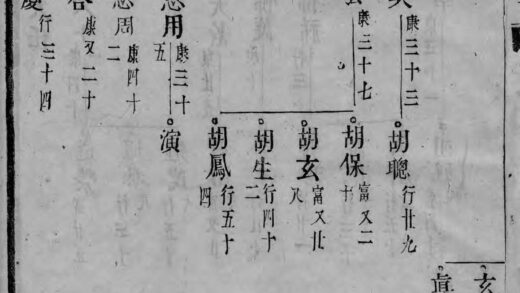 康三十三
康三十七
用康三十五
周康四十二
康又二十
慶行三十四
胡聰行廿九
胡保富又二十
胡玄富又廿八
胡生行四十二
胡鳳行五十四
演
玄
眞